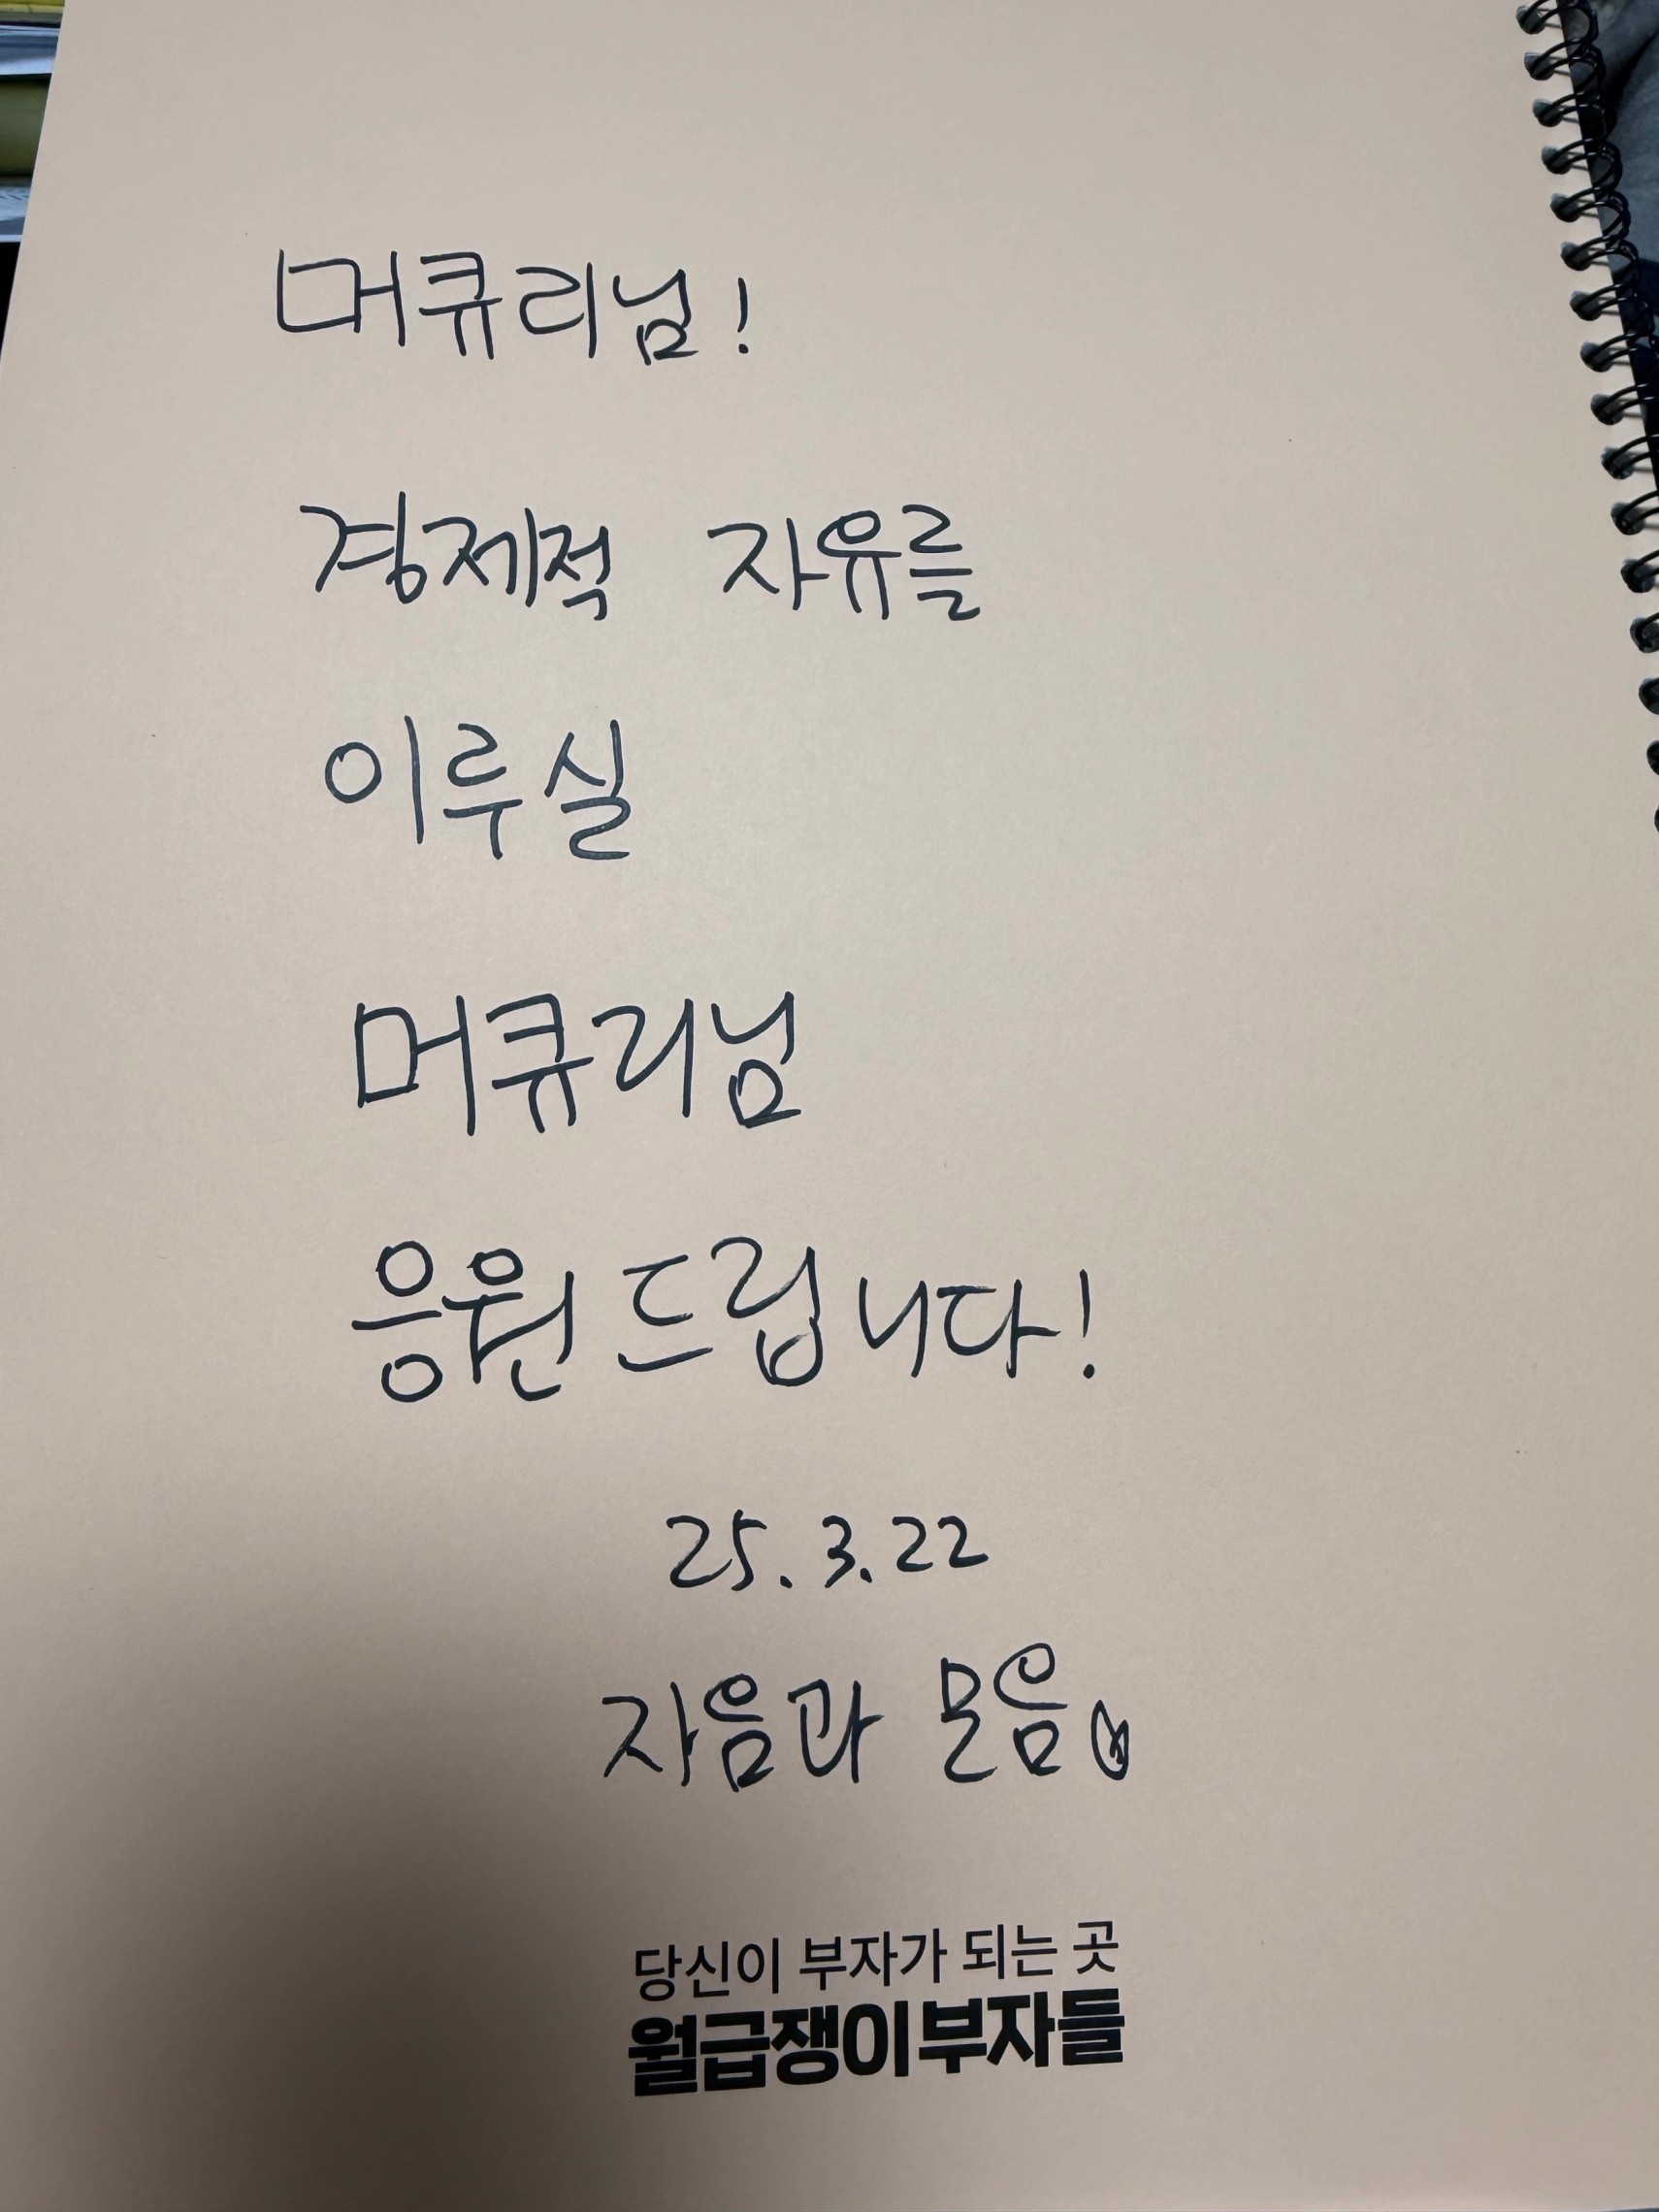 머큐리님!
경제적 자유를
이루실
머큐리님
응원드립니다!
25.3.22
자음과 모음
당신이 부자가 되는 곳
월급쟁이부자들